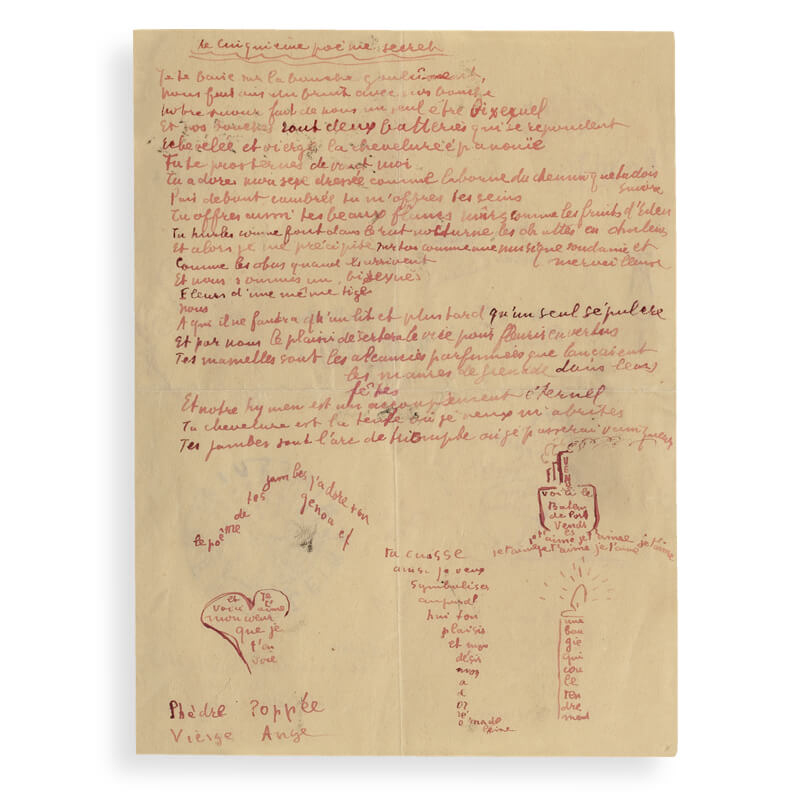 Le cinquième poème secret
Je te baise sur la bouche goulûment,
nous fait ains un bruit avec nos bouche
notre amour fait de nous un seul être bisexuel
Et nos bouches sont deux batteries qui se répondent
échevelée et vierge la chevelure épanouie
Tu te prosternes devant moi
Tu adores mon sexe dressé comme la borne du chemin que tu dois
suivre
Puis debout cambrée tu m'offres tes seins
Tu offres aussi tes beaux flancs mûrs comme les fruits d'Eden
Tu hurles comme font dans le rut nocturne les chattes en chaleur
Et alors je me précipite sur toi comme une musique soudaine et
merveilleuse
Comme les obus quand ils arrivent
Et nous sommes un, bisexués
Fleurs d'une même tige
nous
A qui il ne faudra qu'un lit et plus tard qu'un seul sépulcre
Et par nous le plaisir désertera le vice pour fleurir en vertus
Tes mamelles sont les alcancies parfumées que lançaient
les maures de grenade dans leurs
fêtes
Et notre hymen est un accouplement éternel
Ta chevelure est la tente où je veux m'abriter
Tes jambes sont l'arc de triomphe où je passerai vainqueur
le poème
de
tes
jambes j'adore ton
genou et
FI
VEND
voici le
Bateau
de Port
Vendres
je t'aime je t'aime je t'aime
je t'aime je t'aime je t'aime
ta cuisse
aussi je veux
symboliser
aujourd'
hui ton
plaisir
et mon
désir
mon
a
d
or
é
o made
leine
une
bou
gie
qui
cou
le
ten
dre
ment
et je
voici t'aime
mon cœur
que je
t'en
voie
Phèdre Poppée
Vierge Ange